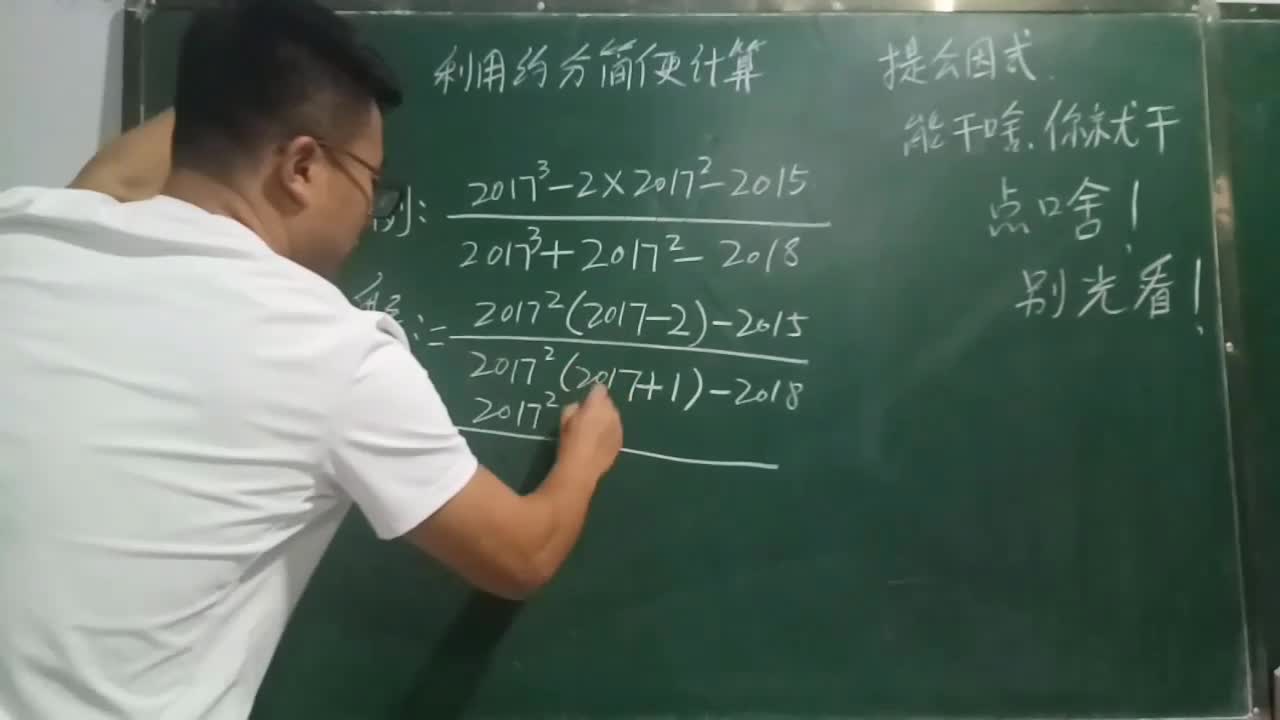 利用约分简便计算
提公因式.
能干啥,你就干
点口啥!
别光看!
例: 2017³-2×2017²-2015
2017³+2017²-2018
解:= 2017²(2017-2)-2015
2017²(2017+1)-2018
2017²